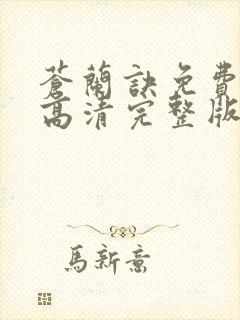 蒼蘭訣免費
高清完整版
馬新意